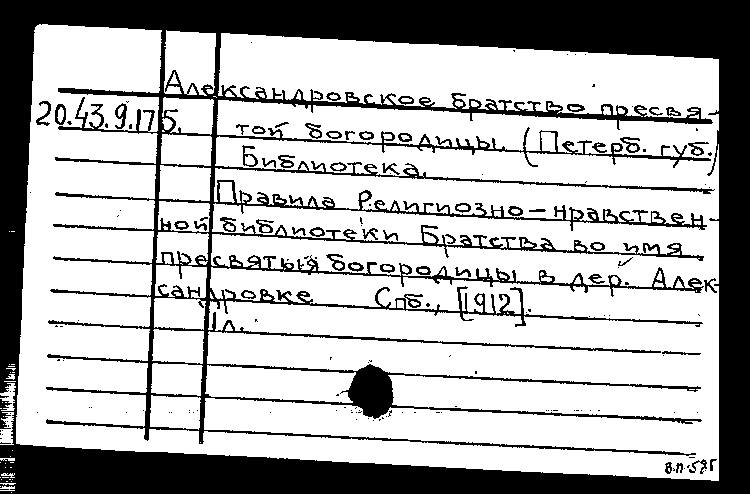 Александровское братство пресвя-
20.43.9.175. той богородицы. (Петерб. губ.)
Библиотека.
Правила Религиозно-нравствен-
ной библиотеки Братства во имя
пресвятыя богородицы в дер. Алек-
сандровке Спб., [1912].
1 л.